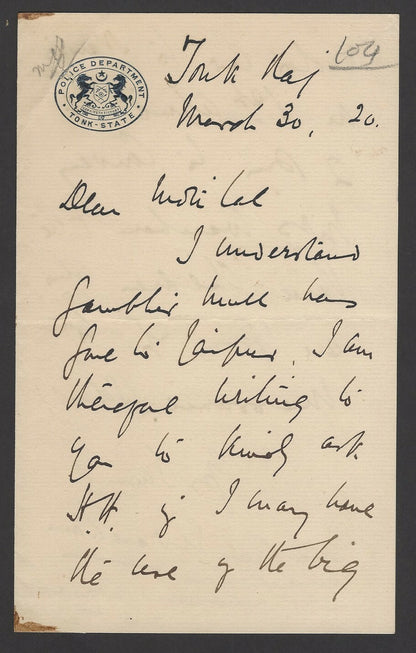 104
POLICE DEPARTMENT
TONK-STATE
Tonk Raj
March 30, 20.
Dear Moti Lal
I understand
Gambhir Mull has
gone to Jaipur, I am
therefore writing to
you to kindly ask
H.H. if I may have
the use of the big